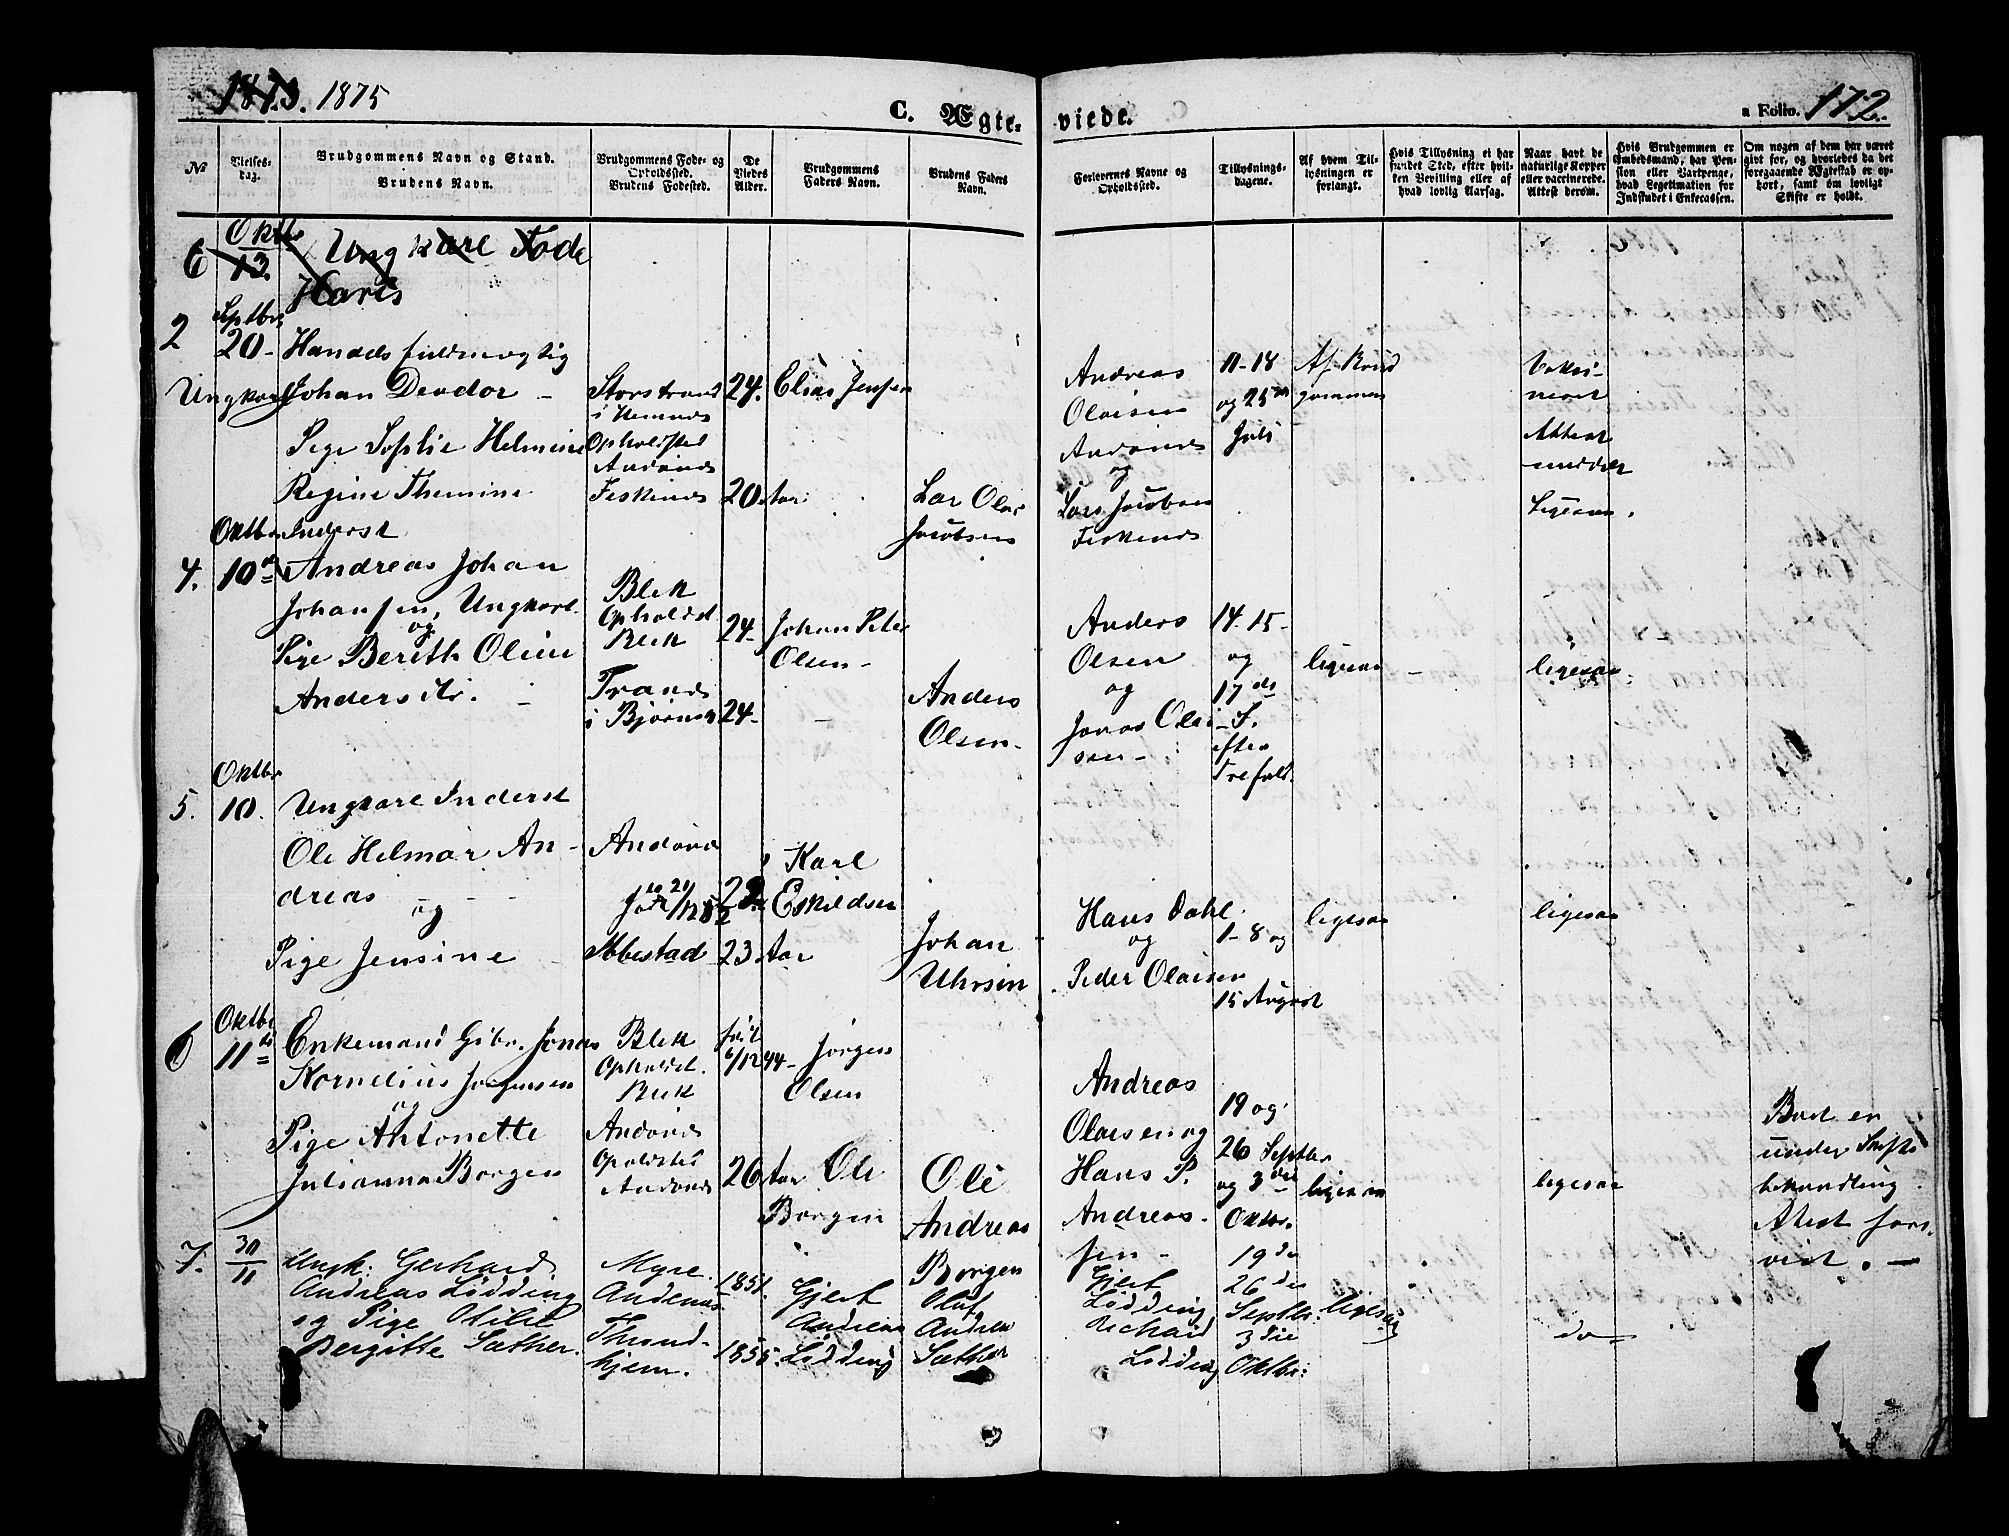 1873. 1875
C. Ægte-viede.
a Folio. 172.
№
Vielses-dag.
Brudgommens Navn og Stand.
Brudens Navn.
Brudgommens Føde- og Opholdssted.
Brudens Fødested.
De Viedes Alder.
Brudgommens Faders Navn.
Brudens Faders Navn.
Forlovernes Navne og Opholdssted.
Tillysnings-dagene.
Af hvem Tillysningen er forlangt.
Hvis Tillysning ei har fundet Sted, efter hvilken Bevilling eller af hvad lovlig Aarsag.
Naar havt de naturlige Kopper eller vaccinerede. Attest derom.
Hvis Brudgommen er Embedsmand, har Pension eller Vartpenge, hvad Legitimation for Indskudet i Enkecassen.
Om nogen af dem har været givt for, og hvorledes da det foregaaende Ægteskab er ophørt, samt om lovligt Skifte er holdt.
6 Oktb 13. Ungkarl Tode
Haris
2 Septbr 20-
Handelsfuldmægtig
Ungkarl Johan Deodor -
Pige Sophie Helmine
Regine Themine
Storstrand
i Hemnes
Opholdsted
Andønes
Feskenes
24.
20 Aar
Elias Jensen
Lar Olai
Jacobsen
Andreas
Olaisen
Andønes
og
Lars Jacobsen
Feskenes
11-18
og 25de
Juli
Af Brud
gommen
Vaksi-
neret
Atteat
meddelt
Ligesaa.
4. Oktbr 10de
Inderst
Andreas Johan
Johansen, Ungkarl
og
Pige Berith Oline
Andersdtr.
Blek
Opholdst
Blek
Trands
i Bjørnsg
24-
24-
Johan Peter
Olsen-
Anders
Olsen-
Anders
Olsen
og
Jonas Olai
sen-
14. 15-
og
17de
efter
Trefold.
ligesaa
ligesaa
5. Oktbr 10.
Ungkarl Inderst
Ole Helmar An-
dreas
og
Pige Jensine
Andønes
Ibbestad
23 Aar
Karl
Eskildsen
Johan
Hans Dahl
og
Peder Olaisen
1-8 og
15 August
ligesaa
ligesaa
6 Oktbr 11te
Enkemand Gbr. Jonas
Kornelius Jørgensen
og
Pige Antonette
Julianna Borgen
Blek
Opholdst.
Blek
Andønes
Opoldsted
Andønes
født
6/12 44-
26 Aar
Jørgen
Olsen
Ole
Borgen
Ole
Andreas
Borgen
Andreas
Olaesen og
Hans P.
Andreas-
sen-
19 og
26 Septbr
og 3die
Oktbr.
ligesaa
ligesaa
Bart er
under Skifte
behandling
Atest fore
vist. -
7. 30/11
Ungk: Gerhard
Andreas Lødding
og Pige Otilie
Bergitte Sæther.
Myre.
Andenæs.
Thrond-
hjem.
1851.
1855.
Gjert
Andreas
Lødding
Oluf
Andreas
Sæther
Gjert
Lødding
Richard
Lødding
19de
26de
Septbr:
3die
Oktbr:
ligesaa
do